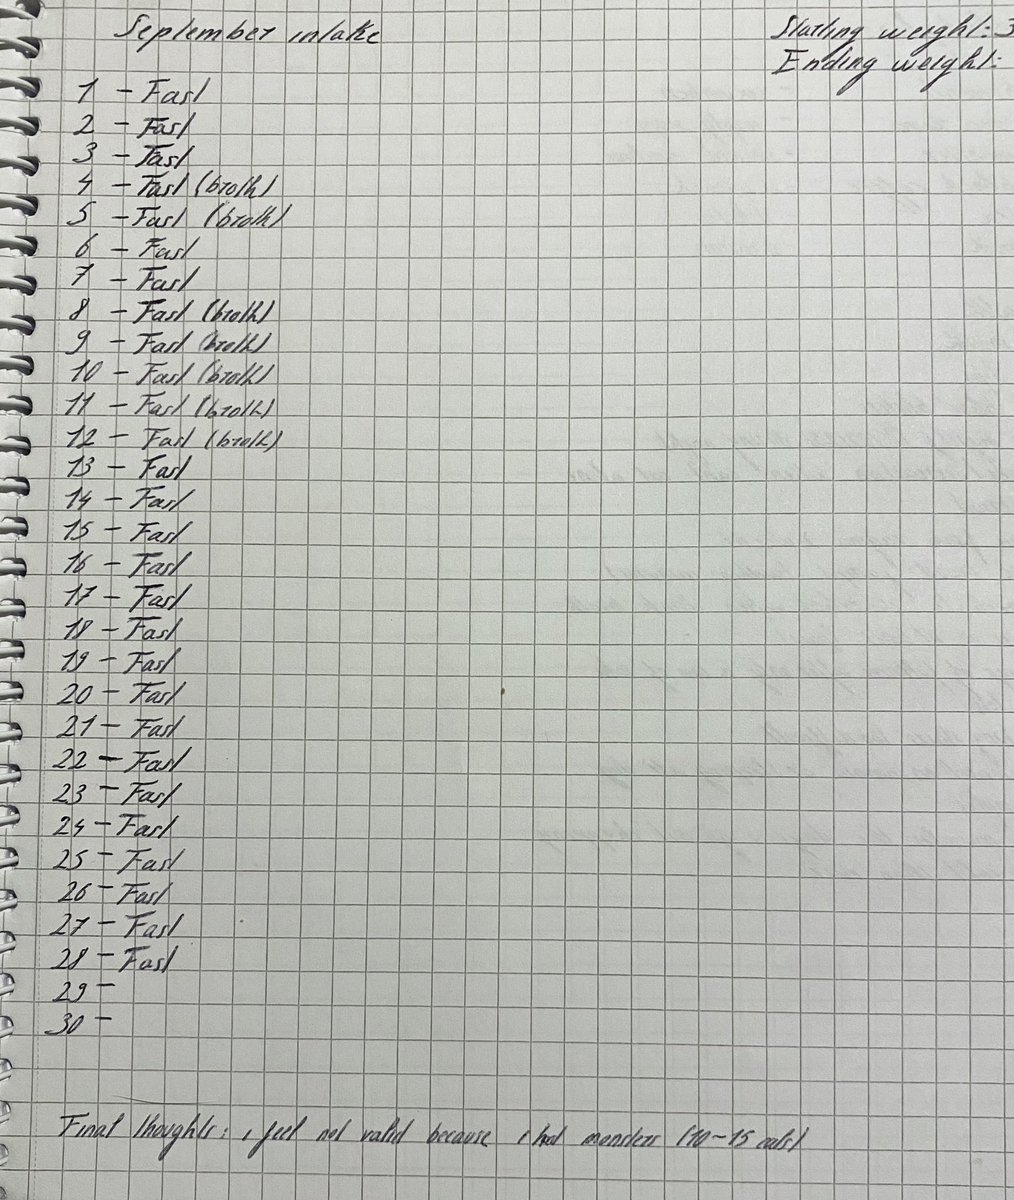 September intake
Starting weight: 3
Ending weight:
1 - Fast
2 - Fast
3 - Fast
4 - Fast (broth)
5 - Fast (broth)
6 - Fast
7 - Fast
8 - Fast (broth)
9 - Fast (broth)
10 - Fast (broth)
11 - Fast (broth)
12 - Fast (broth)
13 - Fast
14 - Fast
15 - Fast
16 - Fast
17 - Fast
18 - Fast
19 - Fast
20 - Fast
21 - Fast
22 - Fast
23 - Fast
24 - Fast
25 - Fast
26 - Fast
27 - Fast
28 - Fast
29 -
30 -
Final thoughts: i feel not valid because i had monsters (10-15 cals)